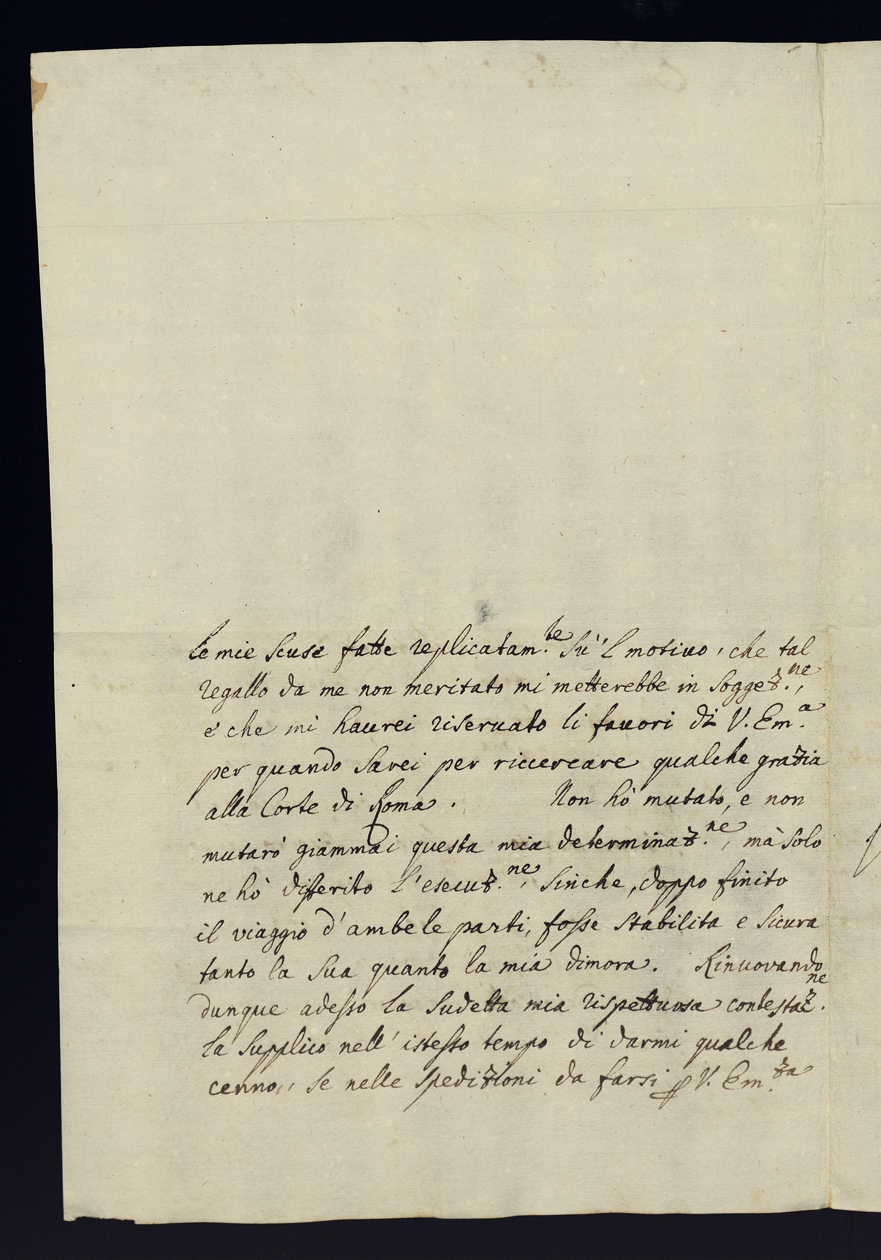 le mie scuse fatte replicatam.te sù 'l motivo, che tal
regallo da me non meritato mi metterebbe in soggez.ne,
e che mi haurei riseruato li fauori di V. Em.a
per quando sarei per riccercare qualche grazia
alla Corte di Roma. Non hò mutato, e non
mutarò giammai questa mia determinaz.ne, mà solo
ne hò differito l'esecuz.ne, sinche, doppo finito
il viaggio d'ambe le parti, fosse stabilita e sicura
tanto la Sua quanto la mia dimora. Rinuovando
dunque adesso la sudetta mia rispettuosa contestaz.ne
la supplico nell' istesso tempo di darmi qualche
cenno, se nelle spedizioni da farsi ꝑ V. Em.za